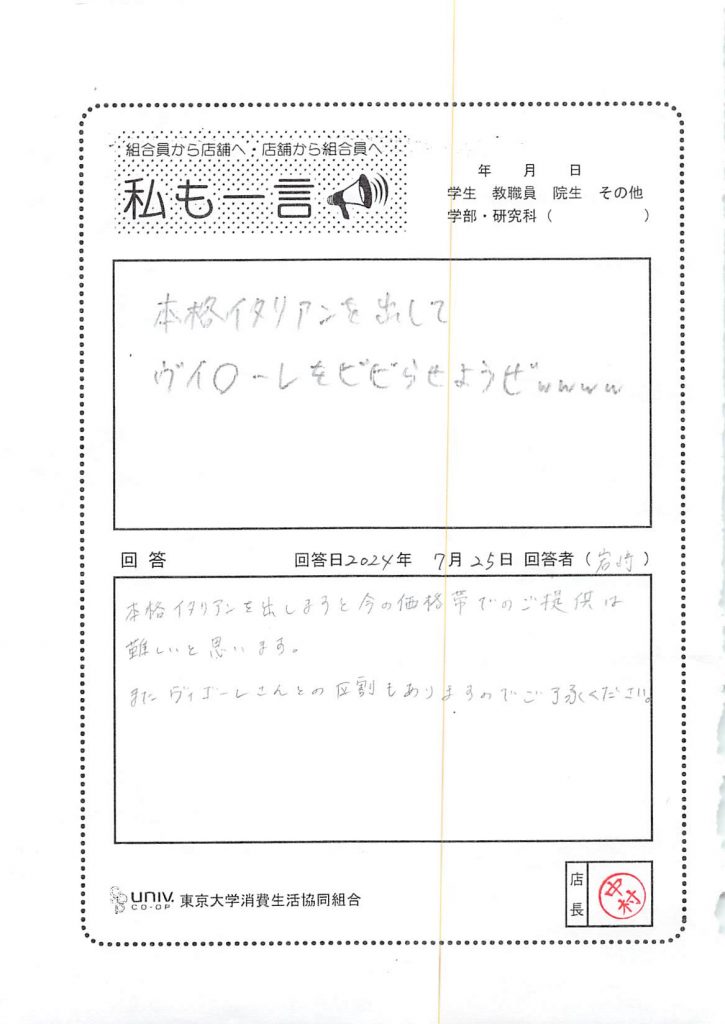 組合員から店舗へ・店舗から組合員へ
私も一言
年 月 日
学生 教職員 院生 その他
学部・研究科( )
本格イタリアンを出して
ヴイ〇ーレをビビらせようぜwwww
回答 回答日2024年 7月25日 回答者(岩崎)
本格イタリアンを出しますと今の価格帯でのご提供は
難しいと思います。
また ヴィゴーレさんとの区割もありますのでご了承ください。
UNIV. CO-OP 東京大学消費生活協同組合
店長 中村